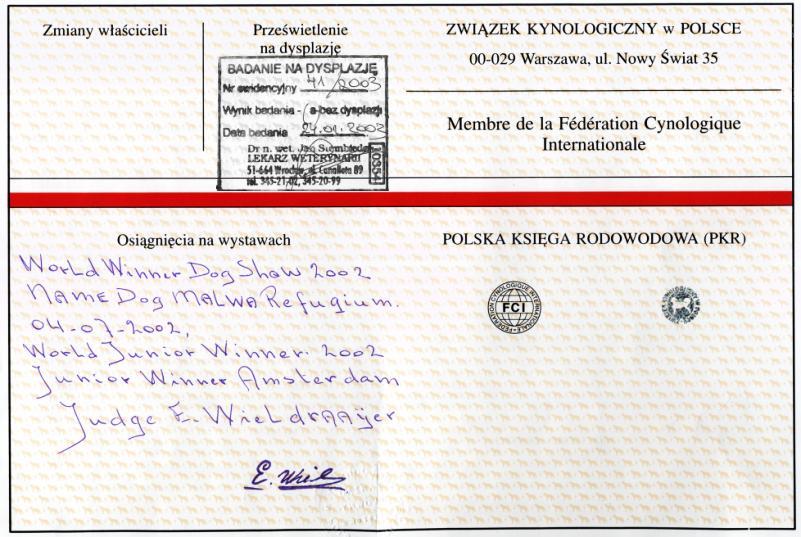 Zmiany właścicieli
Prześwietlenie
na dysplazję
BADANIE NA DYSPLAZJĘ
Nr ewidencyjny 41/2003
Wynik badania - a-bez dysplazji
Data badania
Dr n. wet. Jan
LEKARZ WETERYNARII
51-664 Wrocław, ul. 89
tel. 345-21-02, 345-20-99
ZWIĄZEK KYNOLOGICZNY w POLSCE
00-029 Warszawa, ul. Nowy Świat 35
Membre de la Fédération Cynologique
Internationale
Osiągnięcia na wystawach
World Winner Dog Show 2002
NAME Dog MALWA Refugium.
04-07-2002,
World Junior Winner. 2002
Junior Winner Amsterdam
Judge E. Wieldraaijer
E.
POLSKA KSIĘGA RODOWODOWA (PKR)
FCI
FEDERATION CYNOLOGIQUE INTERNATIONALE